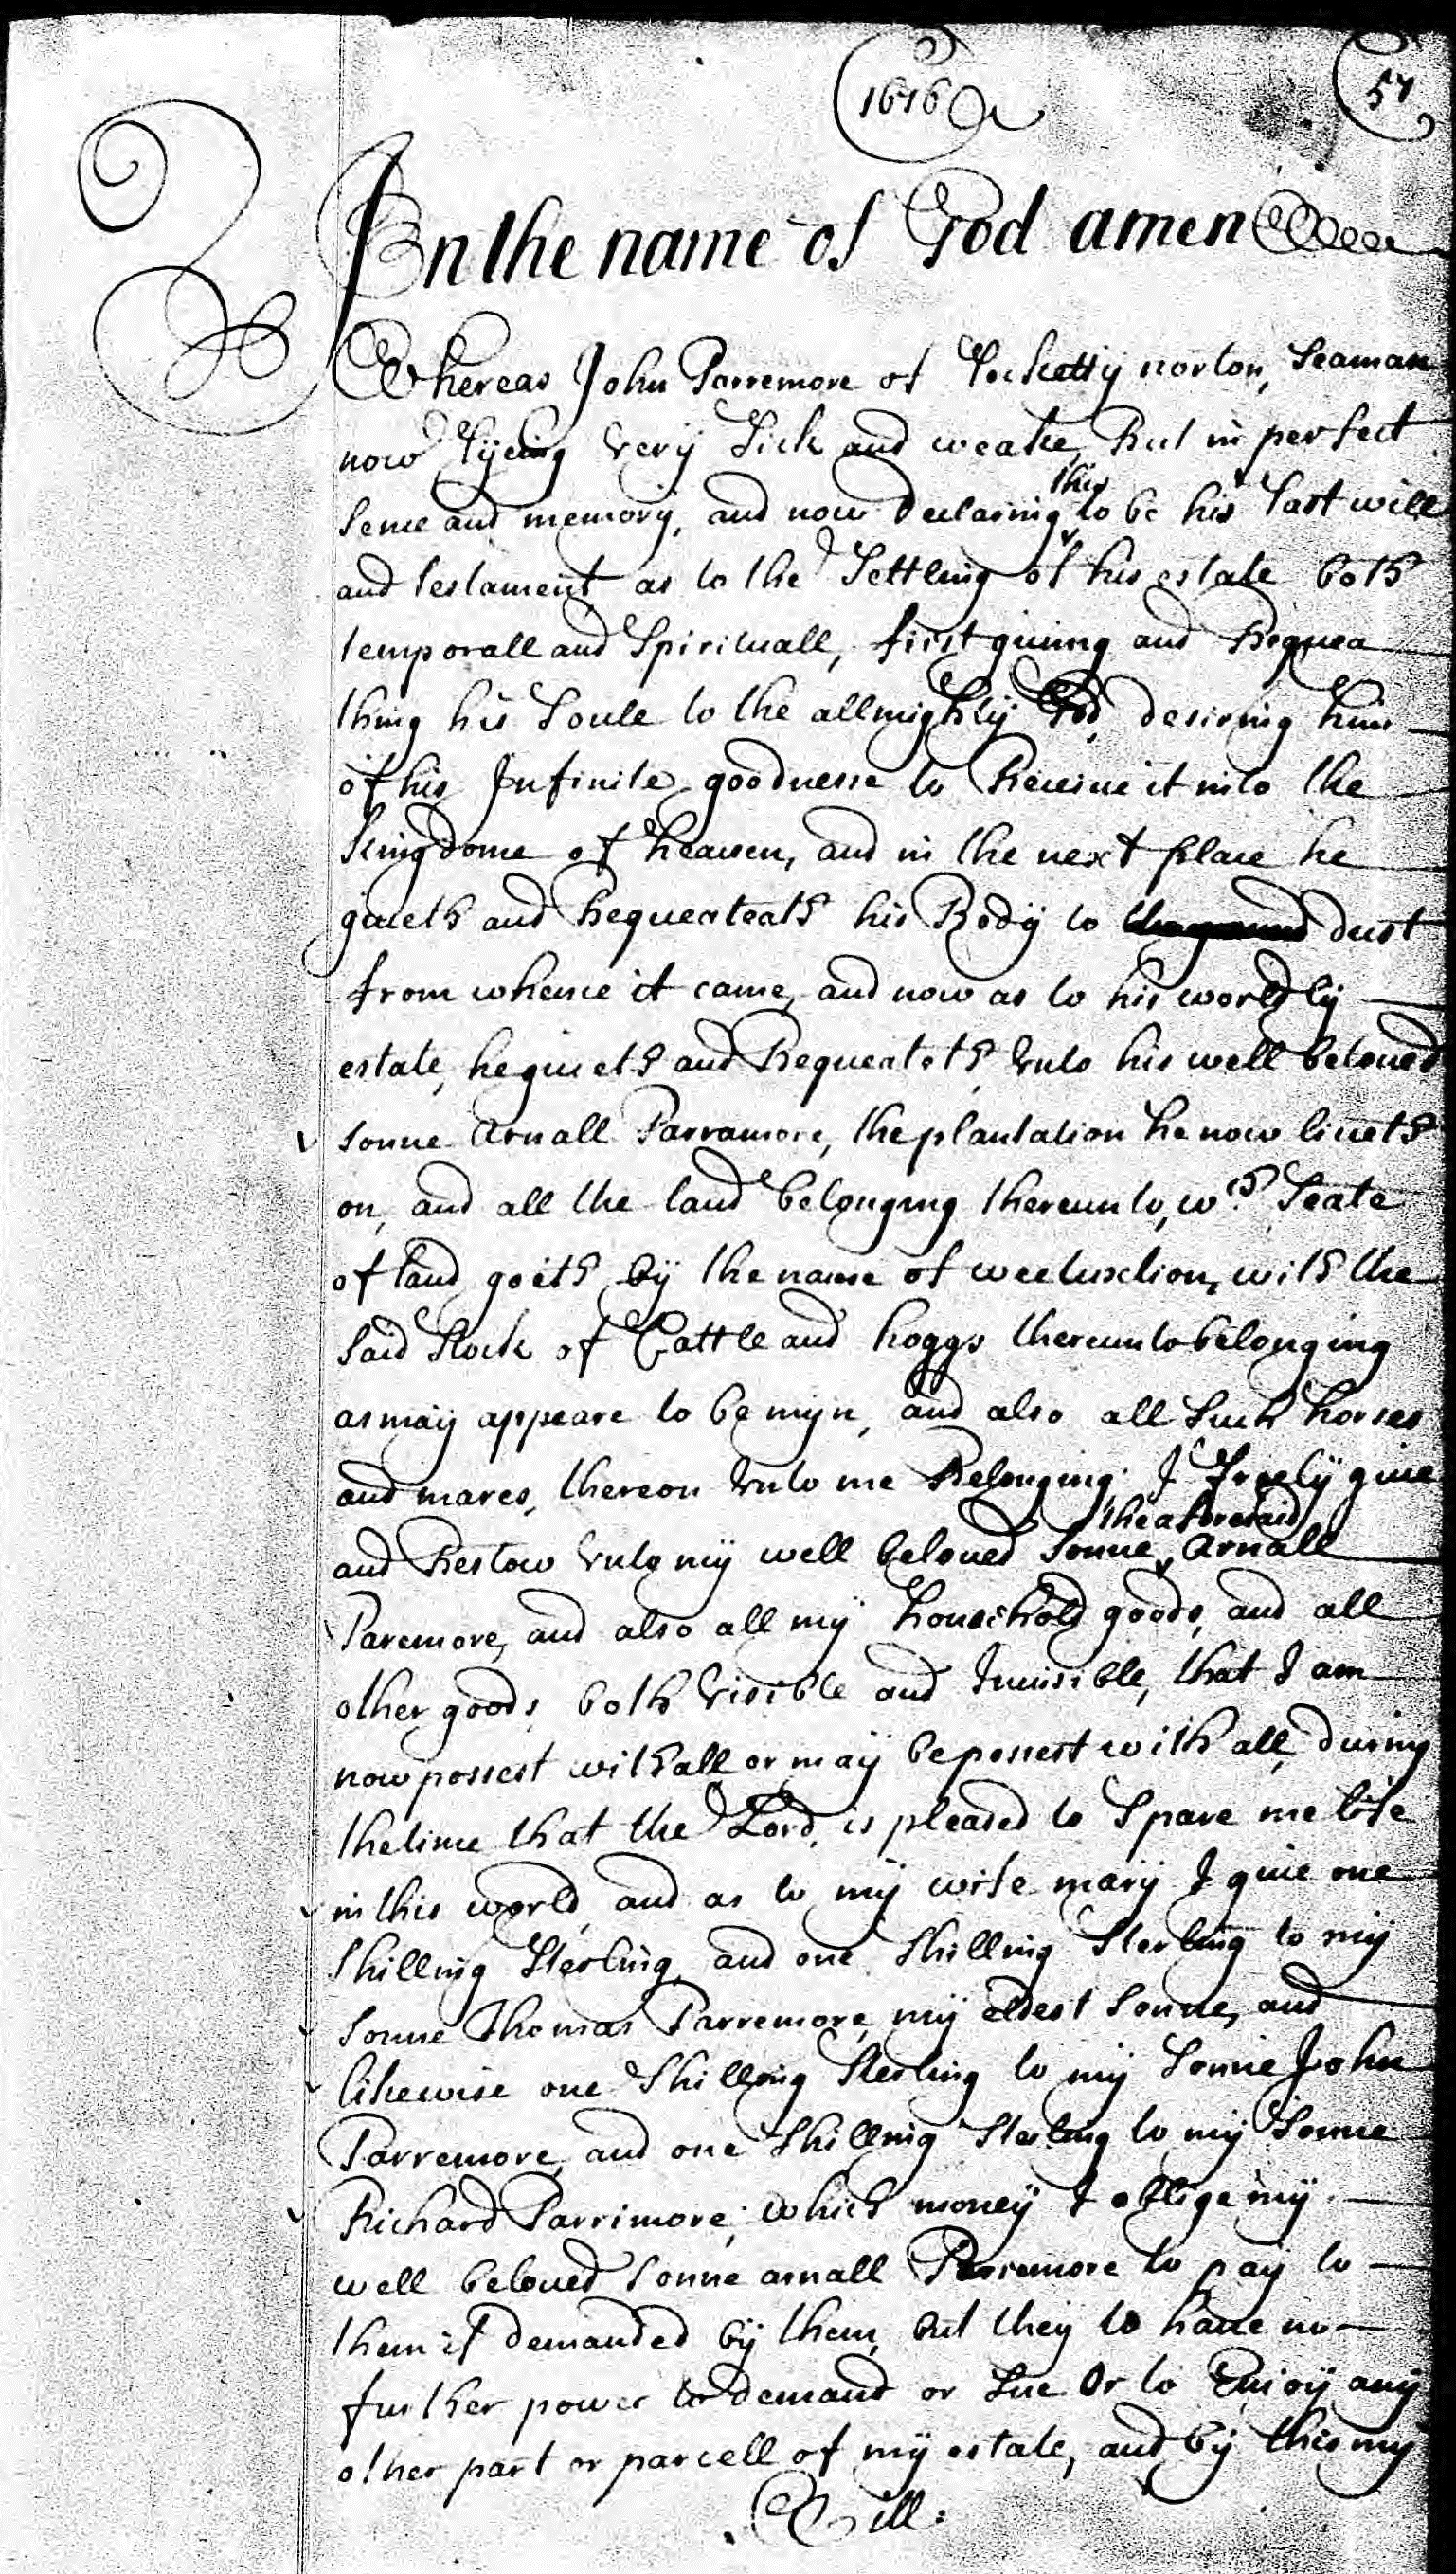 1676
57
In the name of God amen
Whereas John Parremore of norton, Seaman
now lyeing very Sick and weake, But in perfect
sence and memory, and now declaring this to be his last will
and testament as to the Settling of his estate both
temporall and Spirituall, first giuing and Bequea
thing his Soule to the allmighty God, desiring him
of his Infinite goodnesse to Receiue it into the
kingdome of heauen, and in the next place he
giueth and bequeateath his Body to the ground dust
from whence it came, and now as to his worldly
estate, he giueth and Bequeateth, vnto his well beloued
sonne Arnall Parramore, the plantation he now liueth
on, and all the land belonging thereunto, wch Seate
of land goeth by the name of with the
said Stock of Cattle and hoggs thereunto belonging
as may appeare to be myn, and also all such horses
and mares, thereon vnto me Belonging: I freely giue
and Bestow vnto my well beloued Sonne the aforesaid Arnall
Paremore, and also all my household goods, and all
other goods, both visible and Inuisible, that I am
now possest withall or may be possest with all, during
the time that the Lord, is pleased to Spare me life
in this world, and as to my wife mary I giue one
Shilling Sterling, and one Shilling Sterling to my
Sonne Thomas Parremore, my eldest Sonne, and
likewise one Shilling Sterling to my Sonne John
Parremore, and one Shilling Sterling to my Sonne
Richard Parrimore; which money I oblige my
well beloued Sonne arnall Parremore to pay to
them if demanded by them, but they to haue no
further power to demand or Sue Or to Enioy any
other part or parcell of my estate, and by this my
Will: